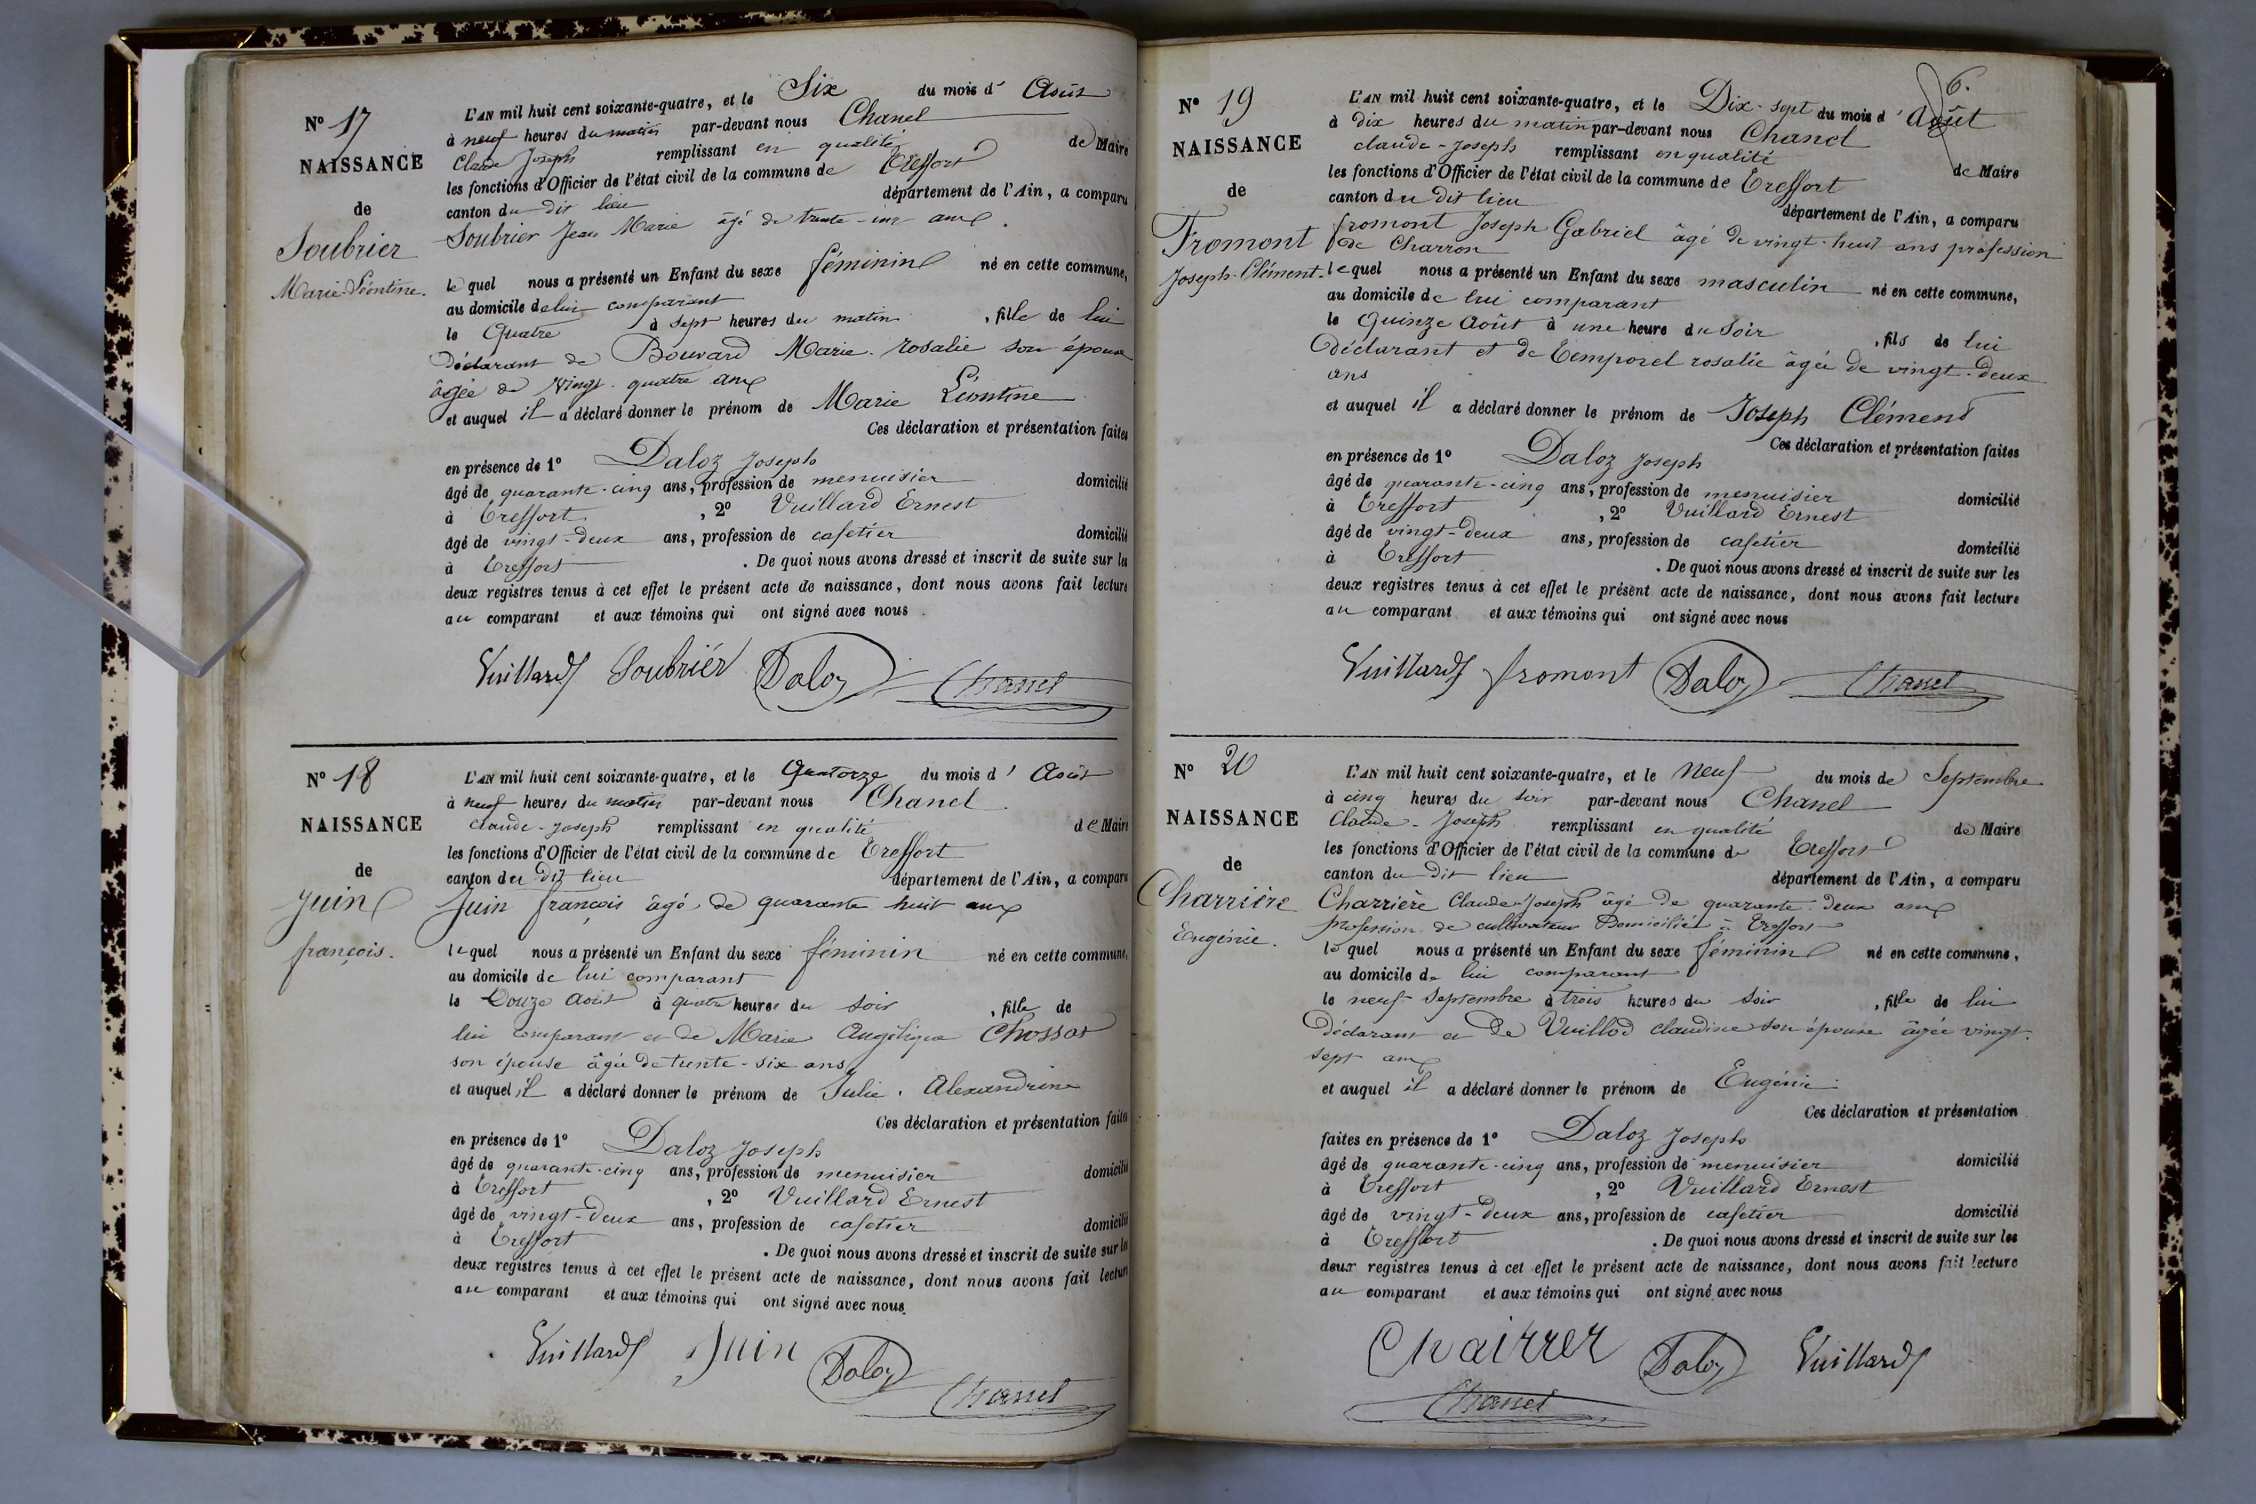 N° 17
NAISSANCE
de
Soubrier
Marie-Léontine.
L'AN mil huit cent soixante-quatre, et le Six du mois d' Août
à neuf heures du matin par-devant nous Chanel
Claude Joseph remplissant en qualité de Maire
les fonctions d'Officier de l'état civil de la commune de Treffort
canton du dit lieu département de l'Ain, a comparu
Soubrier Jean Marie âgé de trente-un ans.
le quel nous a présenté un Enfant du sexe féminin né en cette commune,
au domicile de lui comparant
le Quatre à sept heures du matin , fille de lui
Déclarant de Bouvard Marie-rosalie son épouse
âgée de vingt-quatre ans
et auquel il a déclaré donner le prénom de Marie Léontine
Ces déclaration et présentation faites
en présence de 1° Daloz Joseph
âgé de quarante-cinq ans, profession de menuisier domicilié
à Treffort , 2° Vuillard Ernest
âgé de vingt-deux ans, profession de cafetier domicilié
à Treffort . De quoi nous avons dressé et inscrit de suite sur les
deux registres tenus à cet effet le présent acte de naissance, dont nous avons fait lecture
au comparant et aux témoins qui ont signé avec nous.
Vuillard Soubriér Daloz Chanel
N° 18
NAISSANCE
de
Juin
françois.
L'AN mil huit cent soixante-quatre, et le Quatorze du mois d' Août
à neuf heures du matin par-devant nous Chanel
Claude-Joseph remplissant en qualité de Maire
les fonctions d'Officier de l'état civil de la commune de Treffort
canton du dit lieu département de l'Ain, a comparu
Juin françois âgé de quarante huit ans
le quel nous a présenté un Enfant du sexe féminin né en cette commune,
au domicile de lui comparant
le Douze Août à quatre heures du soir , fille de
lui comparant et de Marie Angélique Chossat
son épouse âgée de trente-six ans
et auquel il a déclaré donner le prénom de Julie. Alexandrine
Ces déclaration et présentation faites
en présence de 1° Daloz Joseph
âgé de quarante-cinq ans, profession de menuisier domicilié
à Treffort , 2° Vuillard Ernest
âgé de vingt-deux ans, profession de cafetier domicilié
à Treffort . De quoi nous avons dressé et inscrit de suite sur les
deux registres tenus à cet effet le présent acte de naissance, dont nous avons fait lecture
au comparant et aux témoins qui ont signé avec nous.
Vuillard Juin Daloz Chanel
6.
N° 19
NAISSANCE
de
Fromont
Joseph-Clément.
L'AN mil huit cent soixante-quatre, et le Dix-sept du mois d' Août
à dix heures du matin par-devant nous Chanel
claude-Joseph remplissant en qualité de Maire
les fonctions d'Officier de l'état civil de la commune de Treffort
canton du dit lieu département de l'Ain, a comparu
fromont Joseph Gabriel âgé de vingt-huit ans profession
de Charron
le quel nous a présenté un Enfant du sexe masculin né en cette commune,
au domicile de lui comparant
le Quinze Août à une heure du soir , fils de lui
Déclarant et de Temporel rosalie âgée de vingt-deux
ans
et auquel il a déclaré donner le prénom de Joseph Clément
Ces déclaration et présentation faites
en présence de 1° Daloz Joseph
âgé de quarante-cinq ans, profession de menuisier domicilié
à Treffort , 2° Vuillard Ernest
âgé de vingt-deux ans, profession de cafetier domicilié
à Treffort . De quoi nous avons dressé et inscrit de suite sur les
deux registres tenus à cet effet le présent acte de naissance, dont nous avons fait lecture
au comparant et aux témoins qui ont signé avec nous
Vuillard fromont Daloz Chanel
N° 20
NAISSANCE
de
Charrière
Eugénie.
L'AN mil huit cent soixante-quatre, et le neuf du mois de Septembre
à cinq heures du soir par-devant nous Chanel
Claude-Joseph remplissant en qualité de Maire
les fonctions d'Officier de l'état civil de la commune de Treffort
canton du dit lieu département de l'Ain, a comparu
Charrière Claude-Joseph âgé de quarante-deux ans
profession de cultivateur Domicilié à Treffort
le quel nous a présenté un Enfant du sexe féminin né en cette commune,
au domicile de lui comparant
le neuf Septembre à trois heures du soir , fille de lui
Déclarant et de Vuillod claudine son épouse âgée vingt-
sept ans
et auquel il a déclaré donner le prénom de Eugénie
Ces déclaration et présentation
faites en présence de 1° Daloz Joseph
âgé de quarante-cinq ans, profession de menuisier domicilié
à Treffort , 2° Vuillard Ernest
âgé de vingt-deux ans, profession de cafetier domicilié
à Treffort . De quoi nous avons dressé et inscrit de suite sur les
deux registres tenus à cet effet le présent acte de naissance, dont nous avons fait lecture
au comparant et aux témoins qui ont signé avec nous
Chairrer Daloz Vuillard
Chanel